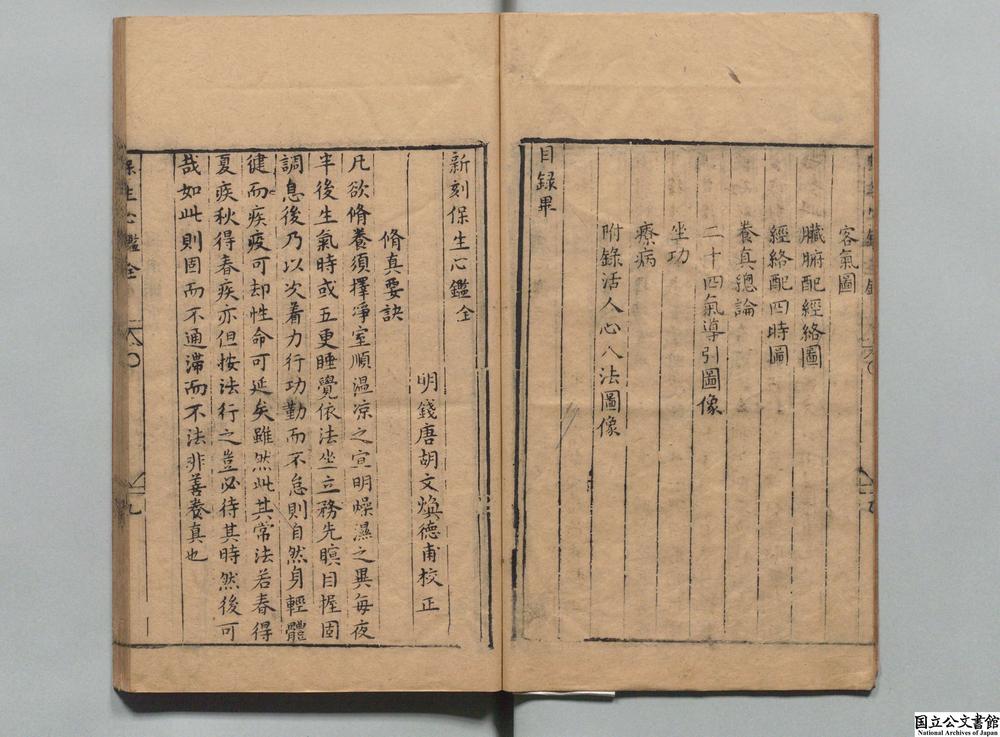 客氣圖
臟腑配經絡圖
經絡配四時圖
養真總論
二十四氣導引圖像
坐功
療病
附錄活人心八法圖像
目錄畢
新刻保生心鑑全
明錢唐胡文煥德甫校正
脩真要訣
凡欲脩養須擇凈室順溫凉之宜明燥濕之異每夜
半後生氣時或五更睡覺依法坐立務先瞑目握固
調息後乃以次着力行功勤而不怠則自然身輕體
健而疾疫可却性命可延矣雖然此其常法若春得
夏疾秋得春疾亦但按法行之豈必待其時然後可
哉如此則固而不通滯而不法非善養真也
保生心鑑全
九
国立公文書館
National Archives of Japan